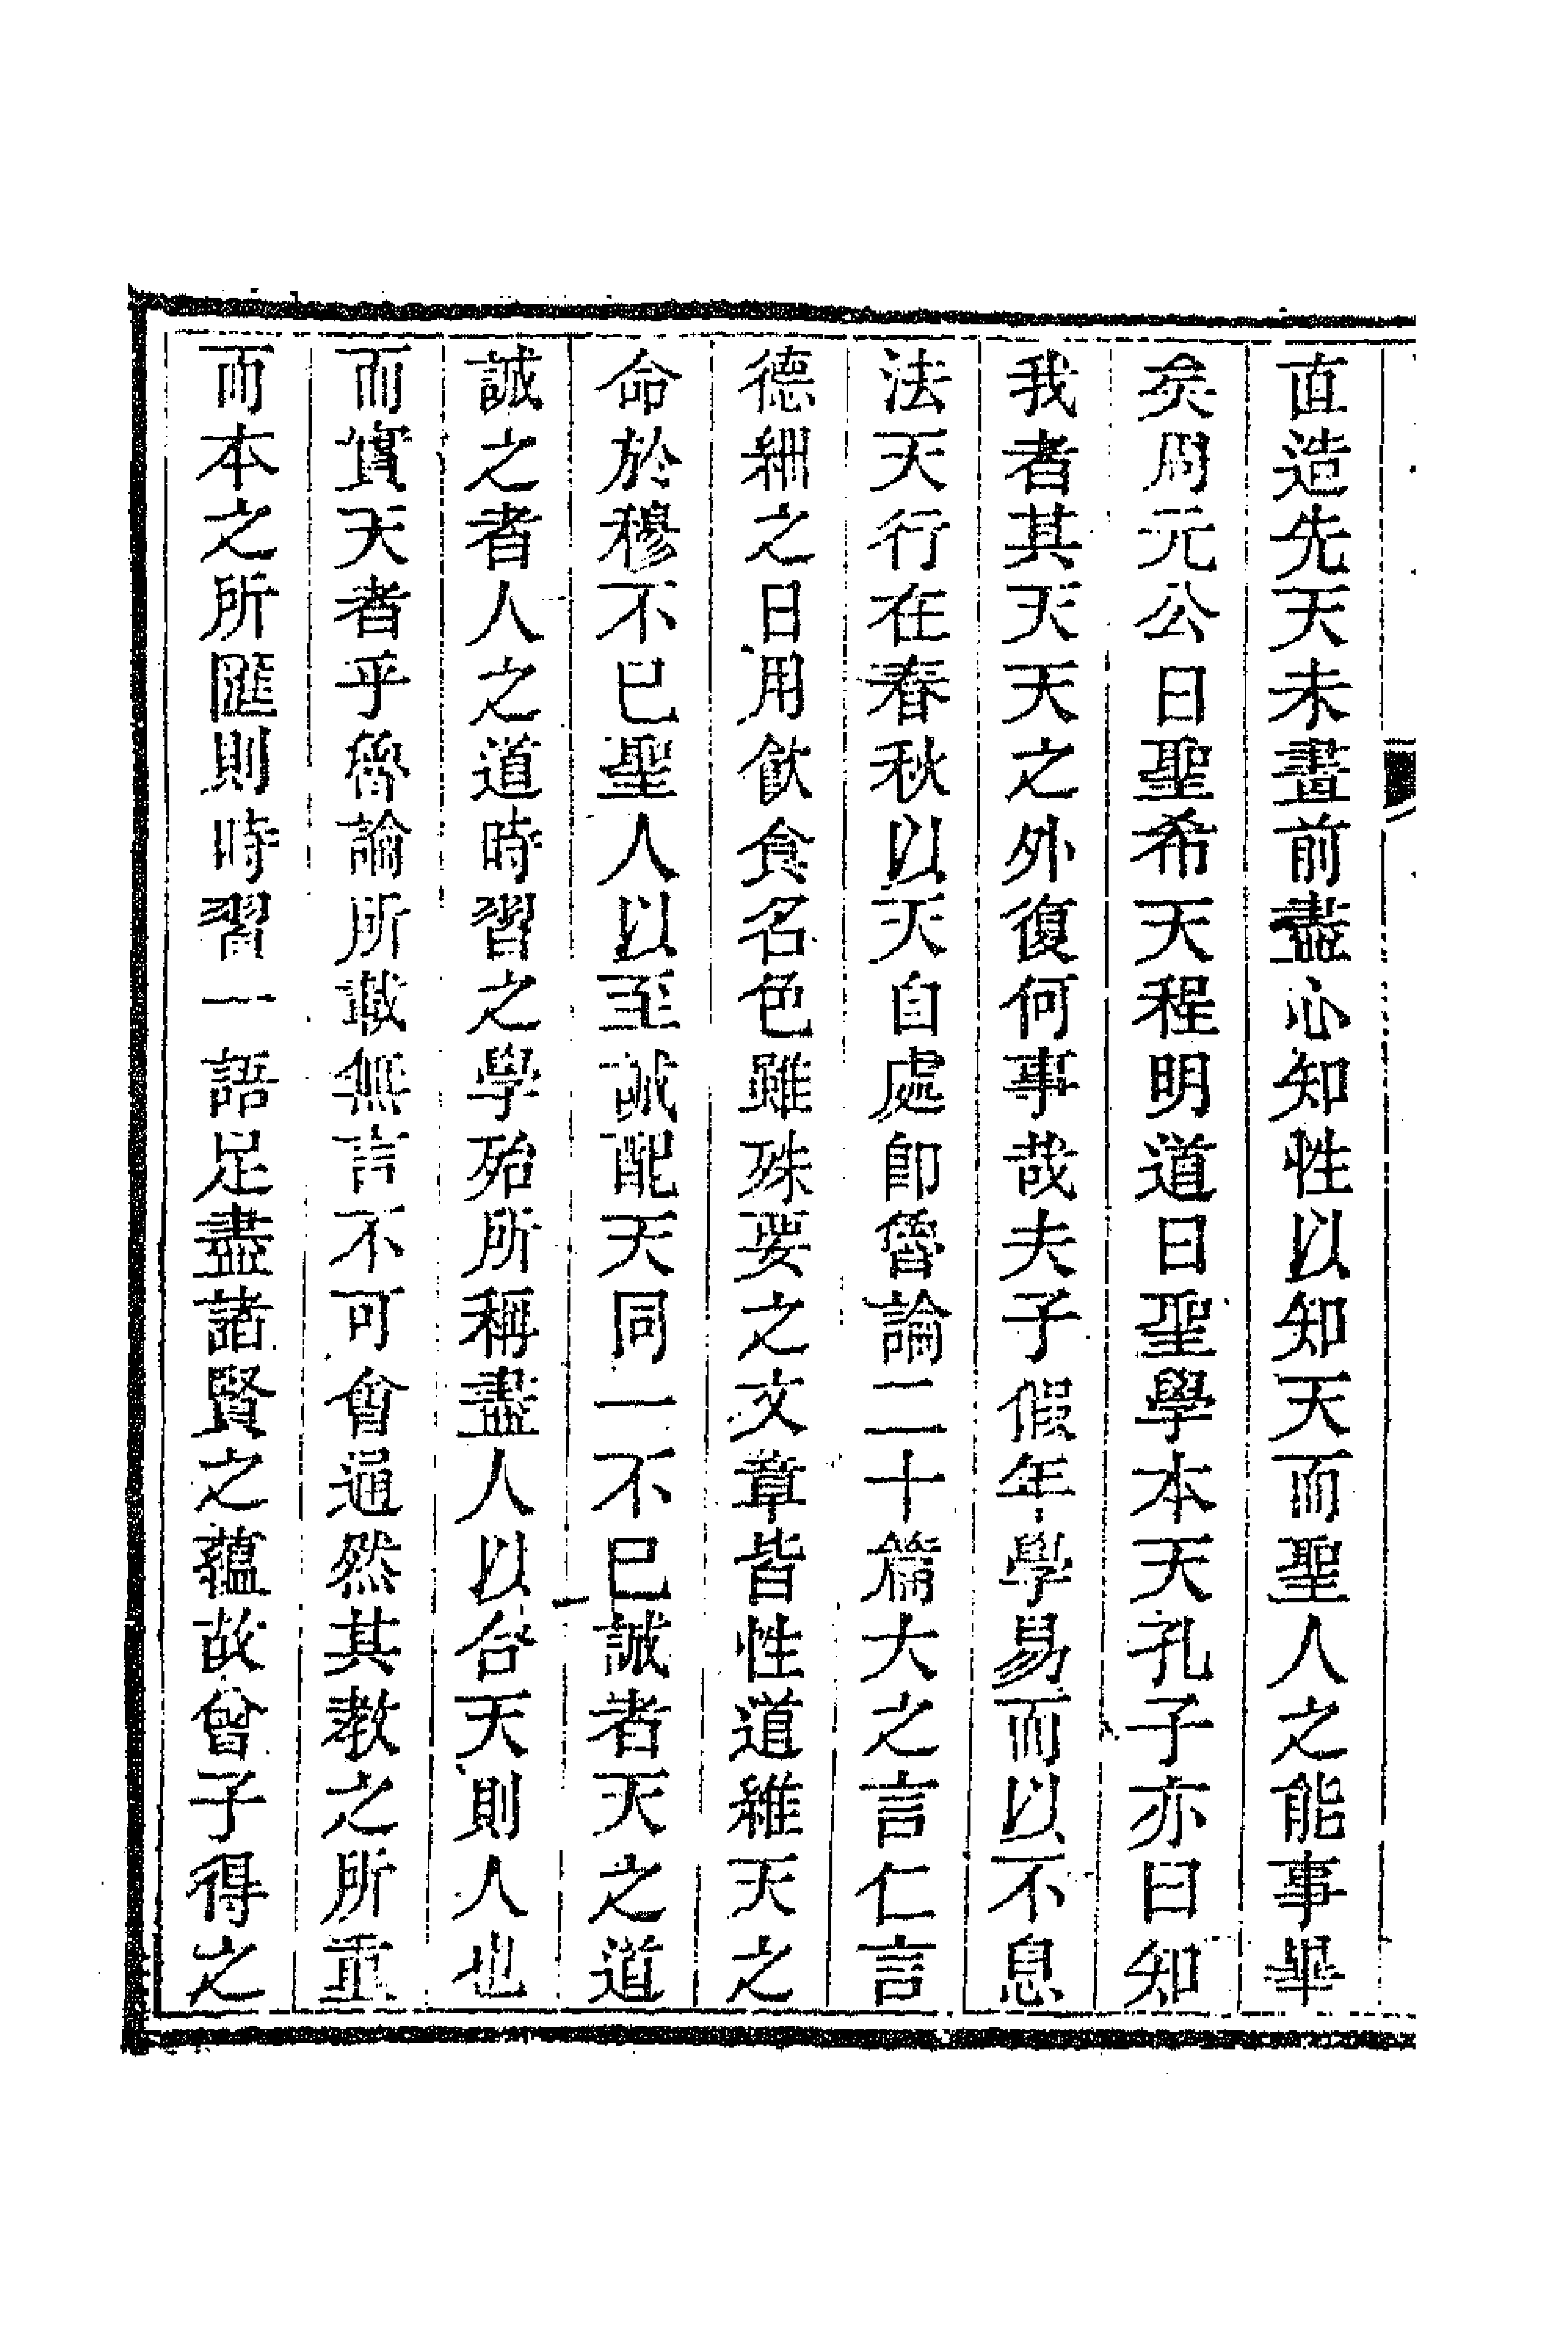 直造先天未畫前盡心知性以知天而聖人之能事畢
矣周元公曰聖希天程明道曰聖學本天孔子亦曰知
我者其天天之外復何事哉夫子假年學易而以不息
法天行在春秋以天自處即魯論二十篇大之言仁言
德細之日用飲食名色雖殊要之文章皆性道維天之
命於穆不已聖人以至誠配天同一不已誠者天之道
誠之者人之道時習之學殆所稱盡人以合天則人也
而實天者乎魯論所載無言不可會通然其教之所重
而本之所匯則時習一語足盡諸賢之蘊故曾子得之